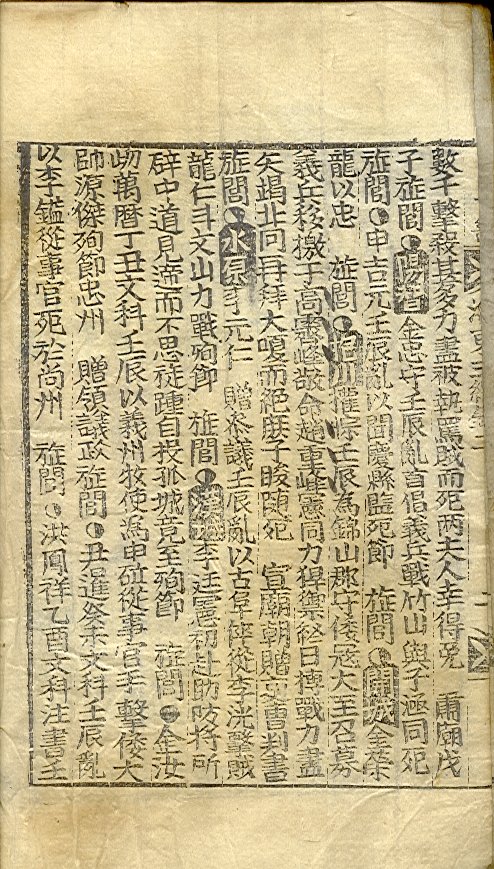 數千擊殺其夥力盡被執罵賊而死两夫人幸得免 肅廟戊
子㫌閭 陽省 金忠守壬辰亂首倡義兵戰竹山與子遯同死
㫌閭 申吉元壬辰亂以聞慶縣監死節 㫌閭 金榮
龍以忠 㫌閭 權悰壬辰為錦山郡守倭冦大至召募
義兵移檄于高霽峰敬命趙重峰憲同力捍禦終日搏戰力盡
矢竭北向再拜大嗄而絕庶子晙随死 宣廟朝贈曹判書
㫌閭 水原 李元仁 贈參議壬辰亂以古阜倅從李洸擊賊
龍仁斗文山力戰殉節 㫌閭 李廷憲初赴防岐将所
碎中道見滯而不思旋踵自投孤城竟至殉節 㫌閭 金汝
岉萬曆丁丑文科壬辰以義州牧使為申砬從事官手擊倭大
帥源傑殉節忠州 贈領議政㫌閭 尹暹癸未文科壬辰亂
以李鎰從事官死於尚州 㫌閭 洪鳳祥乙酉文科注書壬